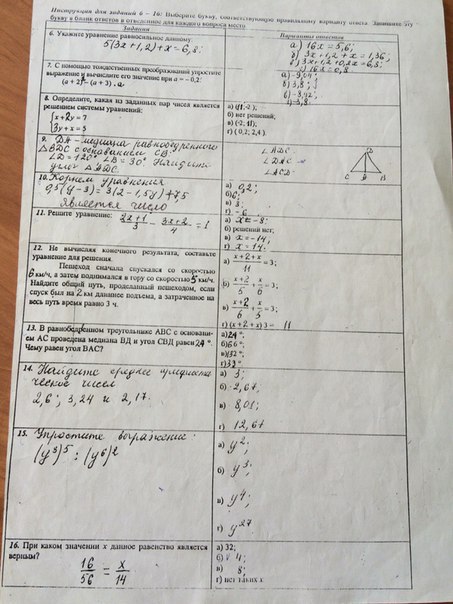 Инструкция для заданий 6 – 16: Выберите букву, соответствующую правильному варианту ответа. Запишите эту
букву в бланк ответов в отведенное для каждого вопроса место.
Задания
Варианты ответа
6. Укажите уравнение равносильное данному:
5(3x+1,2)+x=6,8;
а) 16x=5,6;
б) 3x+1,2+x=1,36
в) 3x+1,2+0,2x=6,8;
г) 16x=0,8
7. С помощью тождественных преобразований упростите
выражение и вычислите его значение при a = – 0,2:
(a + 2)² – (a + 3) · a
а) -9,04;
б) 3,8;
в) -3,92
г) -3,8
8. Определите, какая из заданных пар чисел является
решением системы уравнений:
x+2y = 7
3y+x = 5
а) (11;-2);
б) нет решений;
в) (-2; 11);
г) (0,2; 2,4).
9. DA - медиана равнобедренного
△BDC с основанием CB.
∠D=120° ∠B=30° Найдите
угол △ADC.
∠ADC
∠DAC
∠ACD
C A B
10. Корнем уравнения
0,5(y-3)=3(2-1,5y)+7,5
Является число
а)
б)
в) 3;
г) -6
11. Решите уравнение:
2x+1
3
3x+2
4
=1
а) x=-8;
б) решений нет;
в) x=-14,
г) x=14.
12. Не вычисляя конечного результата, составьте
уравнение для решения.
Пешеход сначала спускался со скоростью
6 км/ч, а затем поднимался в гору со скоростью 5 км/ч.
Найдите общий путь, проделанный пешеходом, если
спуск был на 2 км длиннее подъема, а затраченное на
весь путь время равно 3 ч.
а) (x+2+x)/11 = 3;
б) (x+2)/5 + x/6 = 3;
в) (x+2)/6 + x/5 = 3;
г) (x+2+x)3 = 11
13. В равнобедренном треугольнике АВС с основани-
ем АС проведена медиана ВД и угол СВД равен 24°.
Чему равен угол ВАС?
а) 24°
б) 66°
в) 132°
г) 32°
14. Найдите среднее арифмети-
ческое чисел
2,6; 3,24 и 2,17.
а) 3;
б) 2,67;
в) 8,01;
г) 12,67
15. Упростите выражение
(y³)⁵ : (y⁶)²
а) y²;
б) y³;
в) y⁴;
г) y²⁷
16. При каком значении x данное равенство является
верным?
16/56 = x/14
а) 32;
б) 4;
в) 8;
г) нет таких x